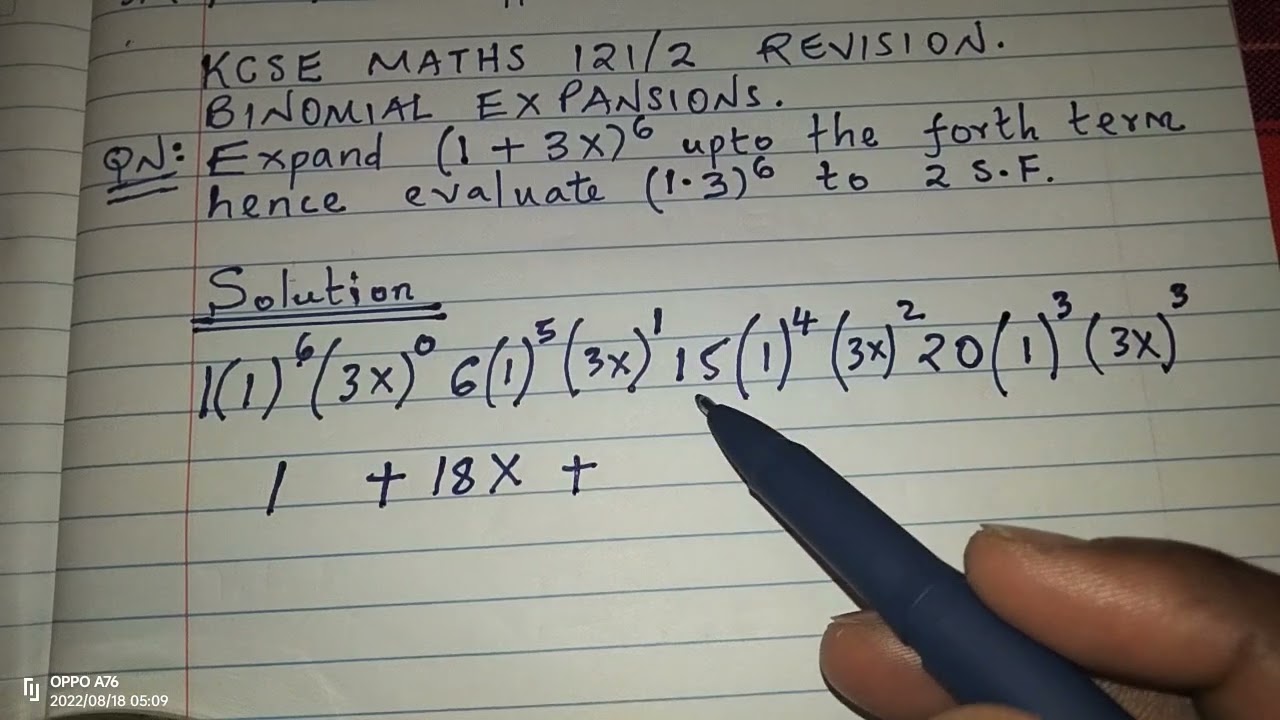 KCSE MATHS 121/2 REVISION.
BINOMIAL EXPANSIONS.
QN: Expand (1 + 3x)⁶ upto the forth term
hence evaluate (1·3)⁶ to 2 S.F.
Solution
1(1)⁶(3x)⁰ 6(1)⁵(3x)¹ 15(1)⁴(3x)² 20(1)³(3x)³
1 + 18x +
OPPO A76
2022/08/18 05:09